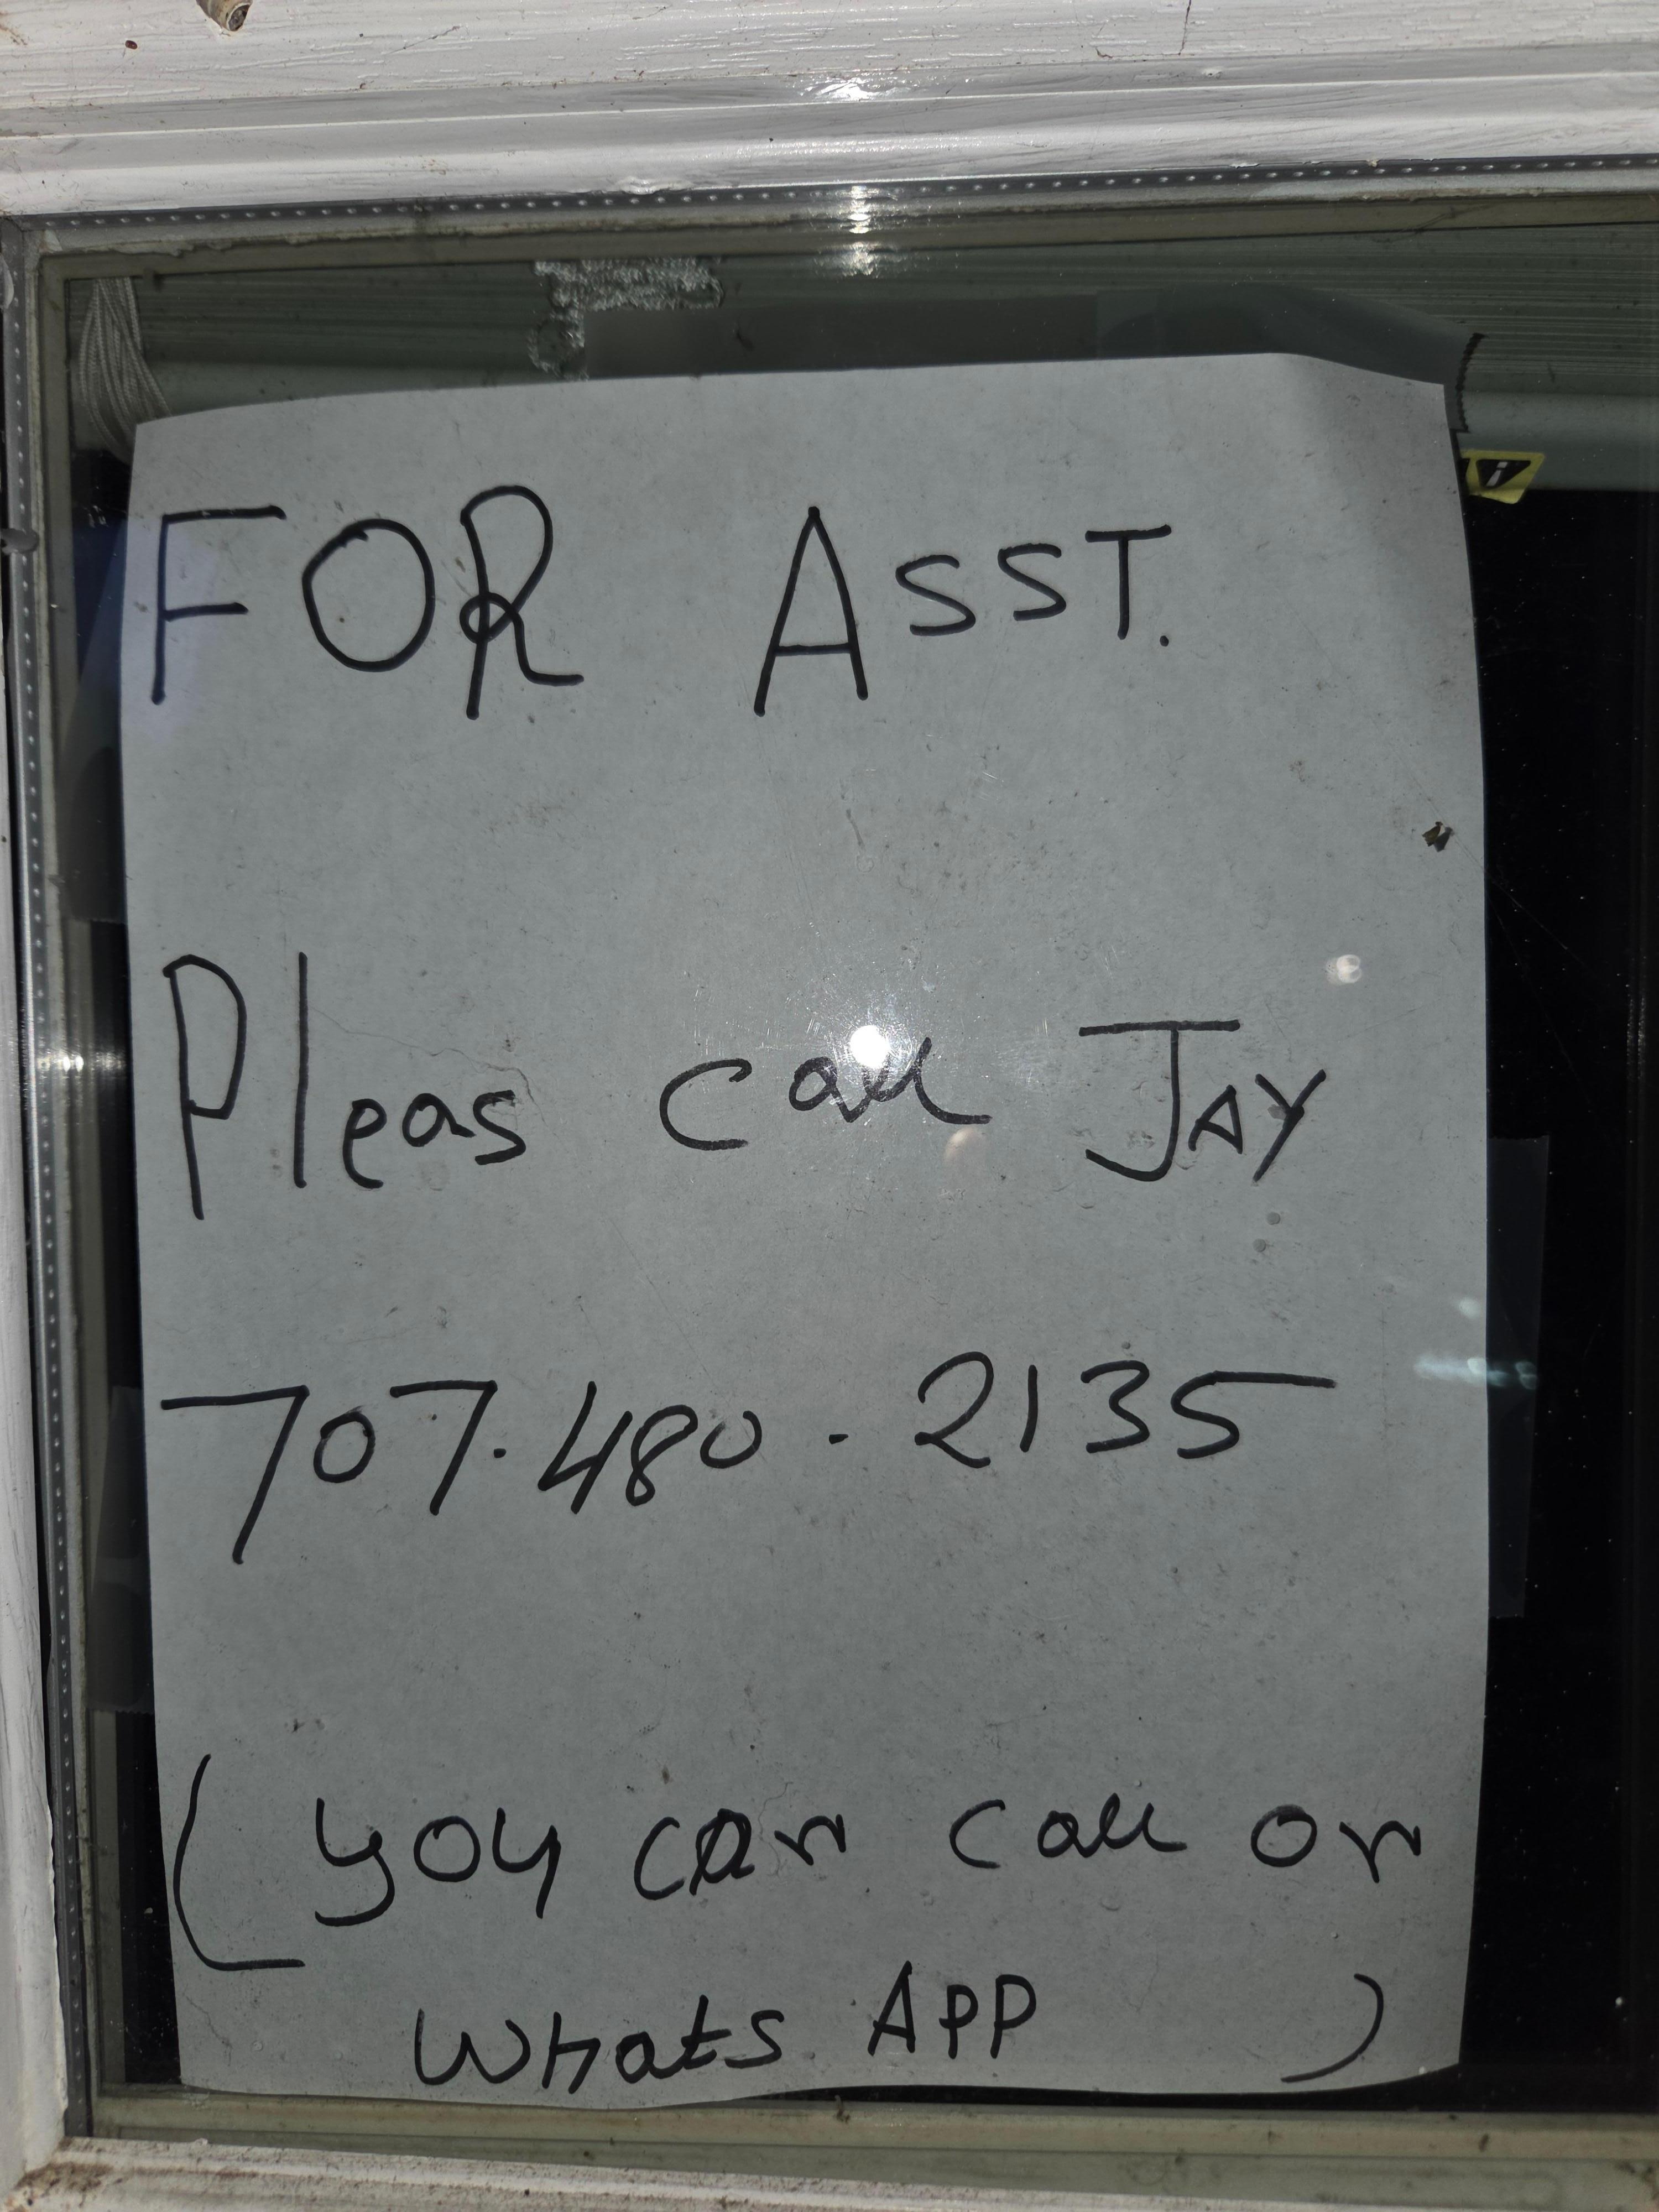 FOR ASST.
Pleas call JAY
707.480.2135
(you can call on
Whats APP )